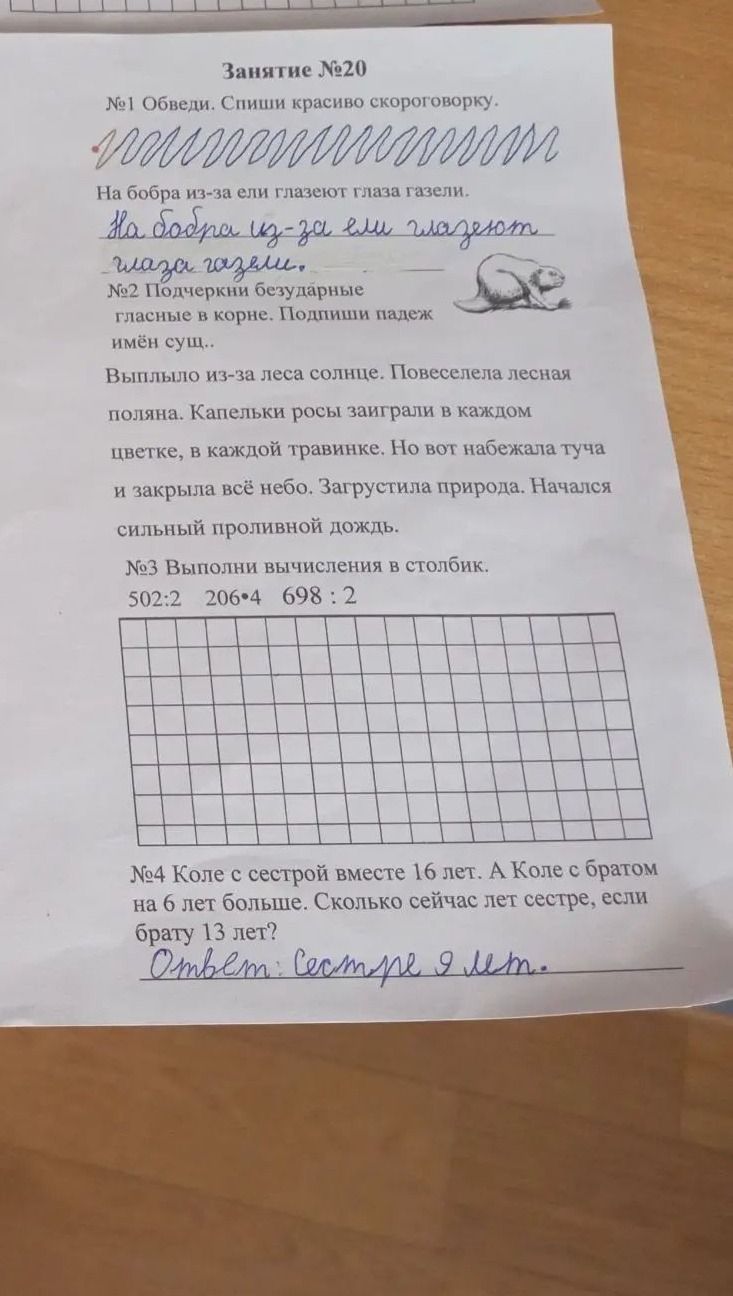 Занятие №20
№1 Обведи. Спиши красиво скороговорку.
На бобра из-за ели глазеют глаза газели.
На бобра из-за ели глазеют
глаза газели.
№2 Подчеркни безударные
гласные в корне. Подпиши падеж
имён сущ..
Выплыло из-за леса солнце. Повеселела лесная
поляна. Капельки росы заиграли в каждом
цветке, в каждой травинке. Но вот набежала туча
и закрыла всё небо. Загрустила природа. Начался
сильный проливной дождь.
№3 Выполни вычисления в столбик.
502:2 206•4 698 : 2
№4 Коле с сестрой вместе 16 лет. А Коле с братом
на 6 лет больше. Сколько сейчас лет сестре, если
брату 13 лет?
Ответ: Сестре 9 лет.